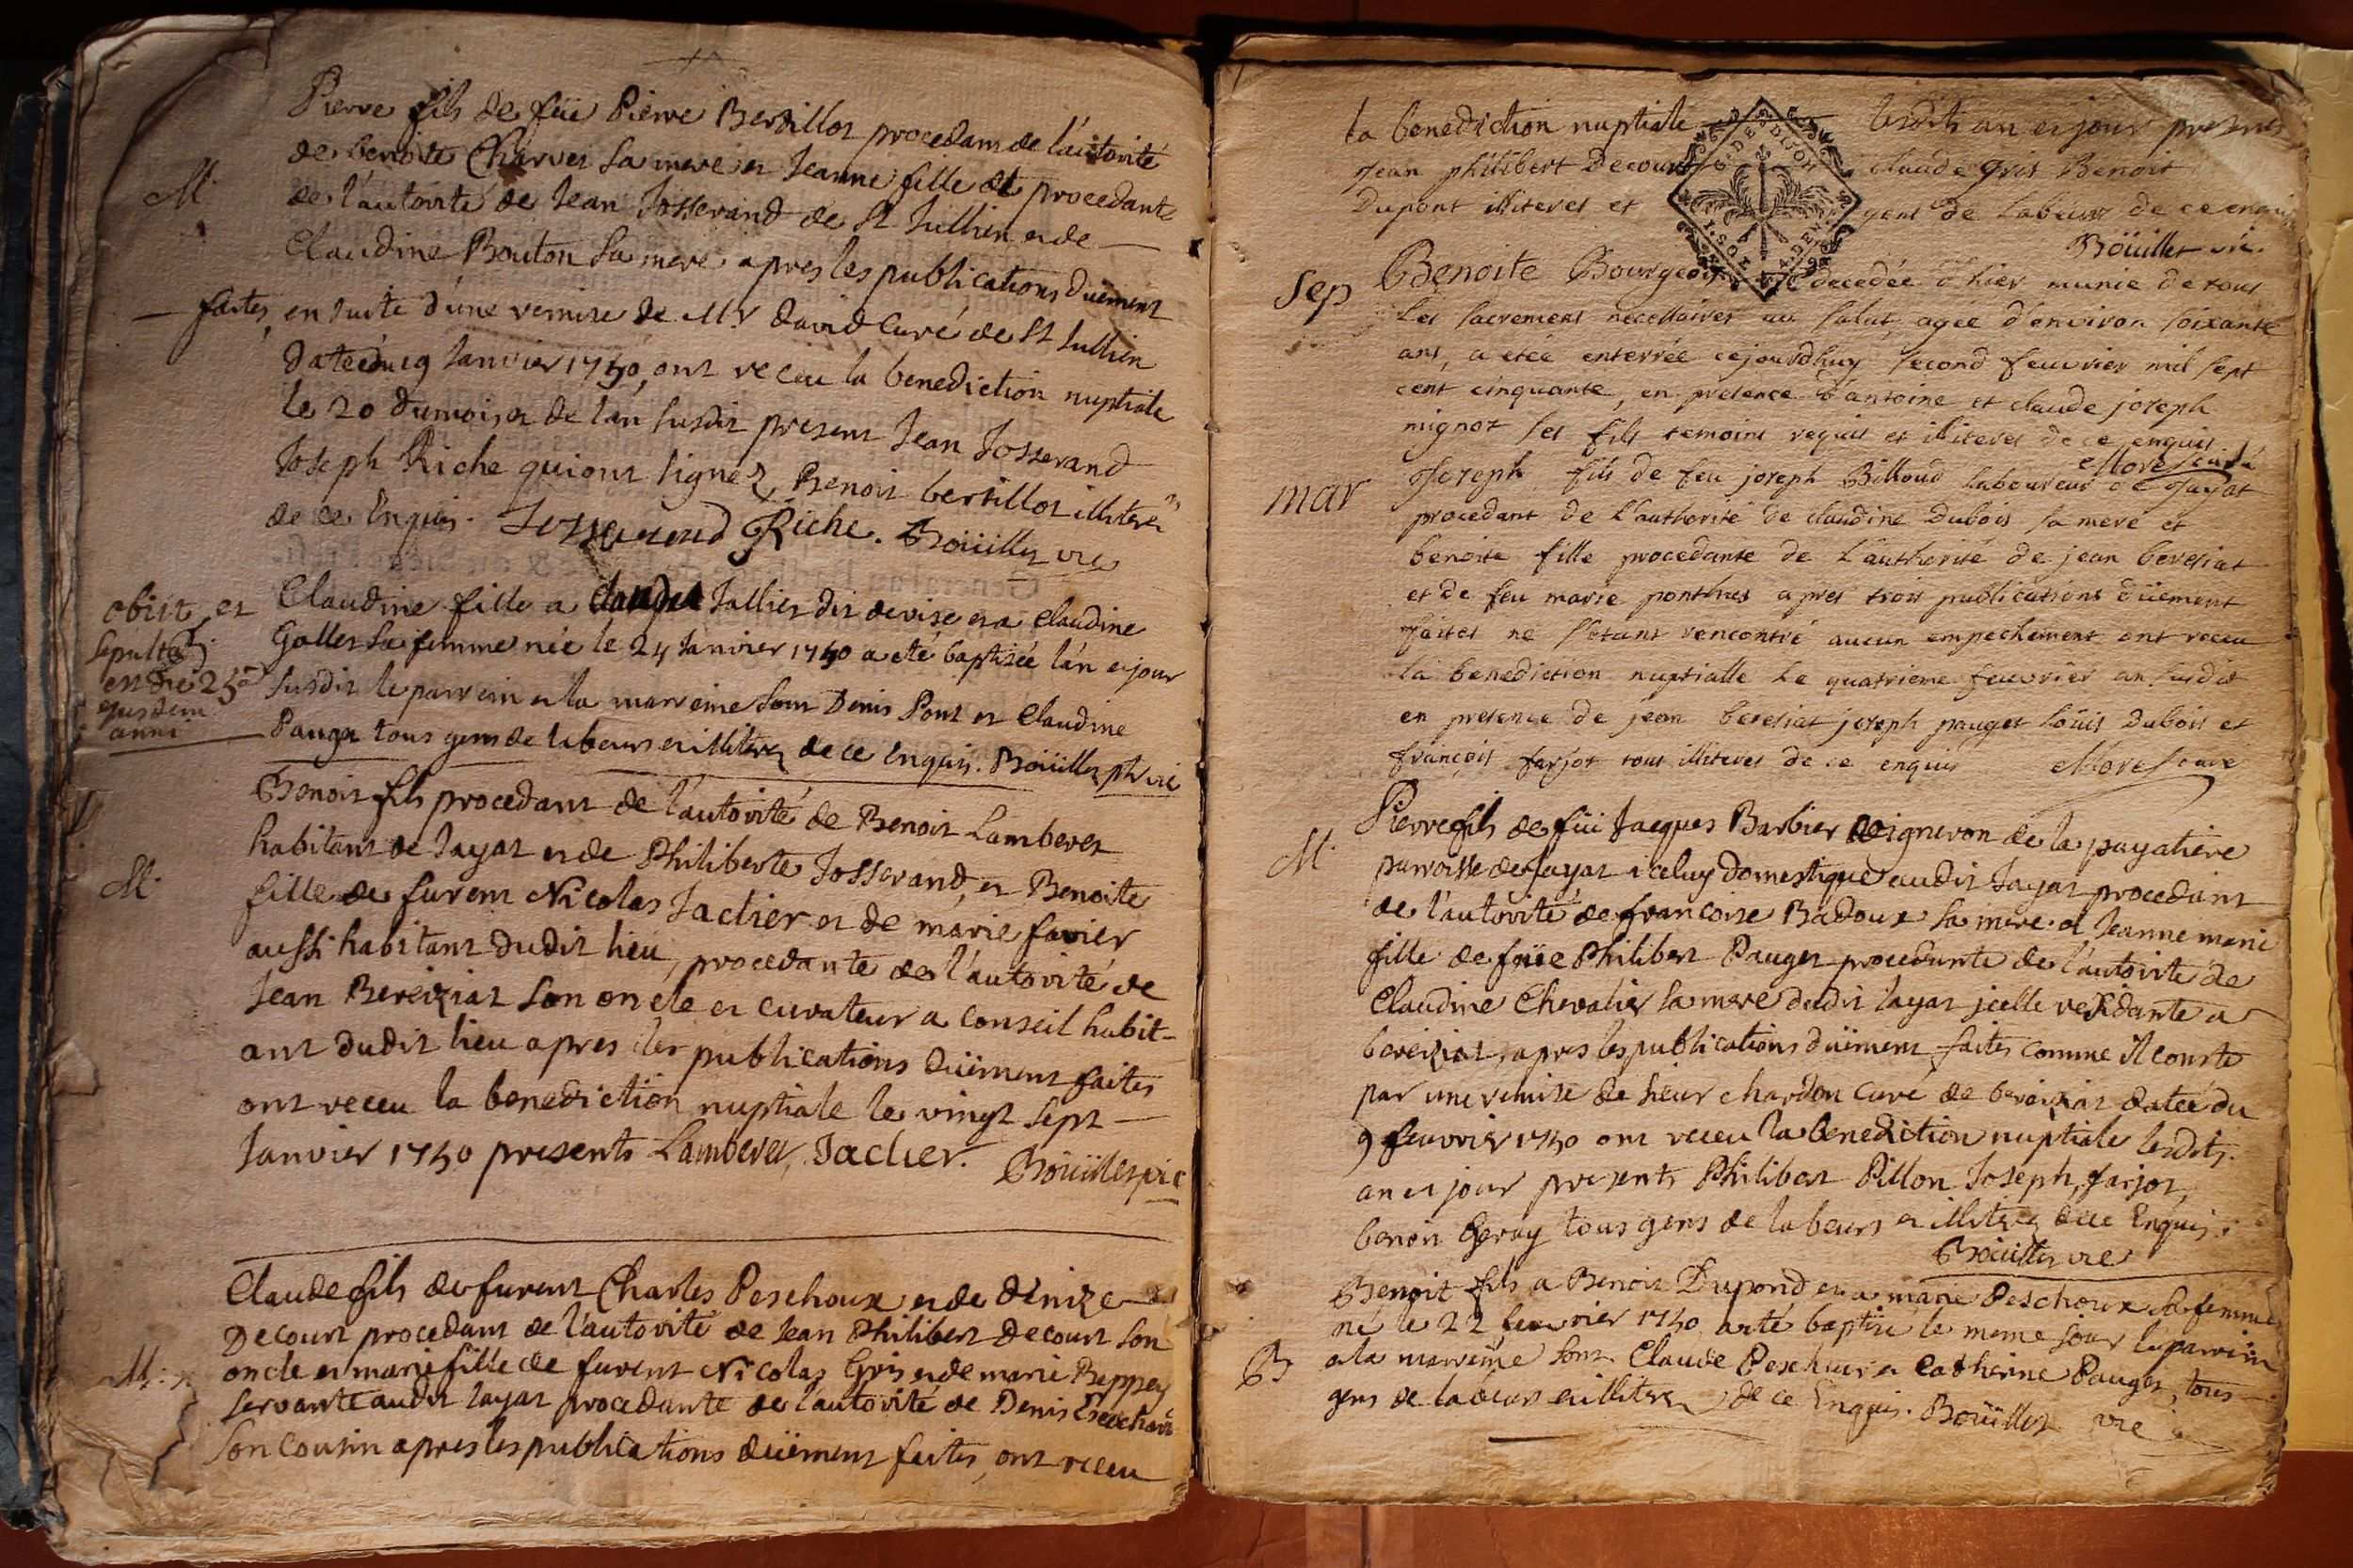 Pierre fils de feü Pierre Bersillot procedant de l'autorité
de benoite Charvet sa mere et Jeanne fille et procedante
M.
de l'autorité de Jean Josserand de St Jullien et de
Claudine Bouton sa mere apres les publications düement
faites, en suite d'une remise de Mr David Curé de St Jullien
datée du 19 Janvier 1750, ont receu la benediction nuptiale
le 20 du mois et de l'an susdit present Jean Josserand
Joseph Riche qui ont signez, Benoit bersillot illiteré
de ce Enquis. Josserand Riche. Boüillet vic
Claudine fille a Claude Jallier dit devise et a Claudine
Gollet sa femme née le 24 Janvier 1750 a eté baptisée l'an et jour
susdit le parrein et la marreine sont Denis Pont et Claudine
Pauget tous gens de labeurs et illiterez de ce Enquis. Boüillet ptre vic
obiit et
sepulta
est die 25a
ejusdem
anni
Benoit fils procedant de l'autorité de Benoit Lamberet
habitant de Jayat et de Philiberte Josserand, et Benoite
M.
fille de furent Nicolas Jaclier et de marie favier
aussi habitant dudit lieu, procedante de l'autorité de
Jean Bereiziat son oncle et curateur a conseil habit-
ant dudit lieu apres les publications düement faites
ont receu la benediction nuptiale le vingt sept
Janvier 1750 presents Lamberet, Jaclier.
Boüillet vic
Claude fils de furent Charles Peschoux et de denize
Decourt procedant de l'autorité de Jean Philibert decourt son
oncle et marie fille de furent Nicolas Gris et de marie Beppey
M.
servante audit Jayat procedante de l'autorité de Denis
son cousin apres les publications düement faites, ont receu
la benediction nuptiale lesdits an et jour presents
Jean philibert Decourt claude gris Benoit
Dupont illiteres et gens de Labeur de ce enquis
Boüillet vic.
Sep
Benoite Bourgeois decedée d'hier munie de tous
les sacrements necessaires au salut, agée d'environ soixante
ans, a etée enterrée cejourdhuy second feuvrier mil sept
cent cinquante, en presence d'antoine et claude joseph
mignot ses fils temoins requis et illiteres de ce enquis
Morel curé
mar
Joseph fils de feu joseph Billoud laboureur de Jayat
procedant de l'authorité de claudine Dubois sa mere et
benoite fille procedante de l'authorité de jean beresiat
et de feu marie ponthus apres trois publications düement
faites ne s'etant rencontré aucun empechement ont receu
la benediction nuptialle le quatrieme feuvrier an susdit
en presence de jean beresiat joseph pauget loüis Dubois et
françois farjot tous illiteres de ce enquis Morel curé
Pierre fils de feü Jacques Barbier vigneron de la payatiere
M.
parroisse de Jayat iceluy domestique audit Jayat procedant
de l'autorité de francoise Badoux sa mere. et Jeanne marie
fille de feüe Philibert Pauget procedante de l'autorité de
Claudine Chevalier sa mere dudit Jayat jcelle residante a
bereiziat, apres les publications düement faites comme il conste
par une remise de sieur chardon curé de bereiziat datée du
9 feuvrier 1750 ont receu la benediction nuptiale lesdits.
an et jour presents Philibert Pillon Joseph, farjot,
benoit Geray tous gens de labeurs et illiterez de ce Enquis.
Boüillet vic
Benoit fils a Benoit Dupond et a marie Peschoux sa femme
né le 22 feuvrier 1750 a eté baptisé le meme jour le parrein
B
et la marreine sont Claude Peschoux et Catherine Pauget, tous
gens de labeurs et illiterez de ce Enquis. Boüillet vic